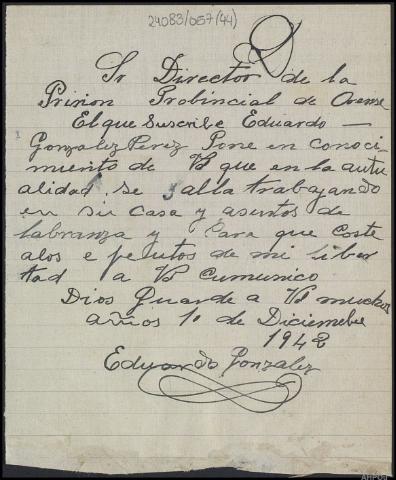 24083/057(44)
Sr Director de la
Prision Probincial de Orense
El que suscribe Eduardo
Gonzalez Perez Pone en conoci
miento de Vd que en la autu
alidad se jalla trabajando
en su casa y asuntos de
labranza y Para que coste
alos efeutos de mi liber
tad a Vd cumunico
Dios Guarde a Vd muchos
años 1º de Diciembre
1942
Eduardo Gonzalez